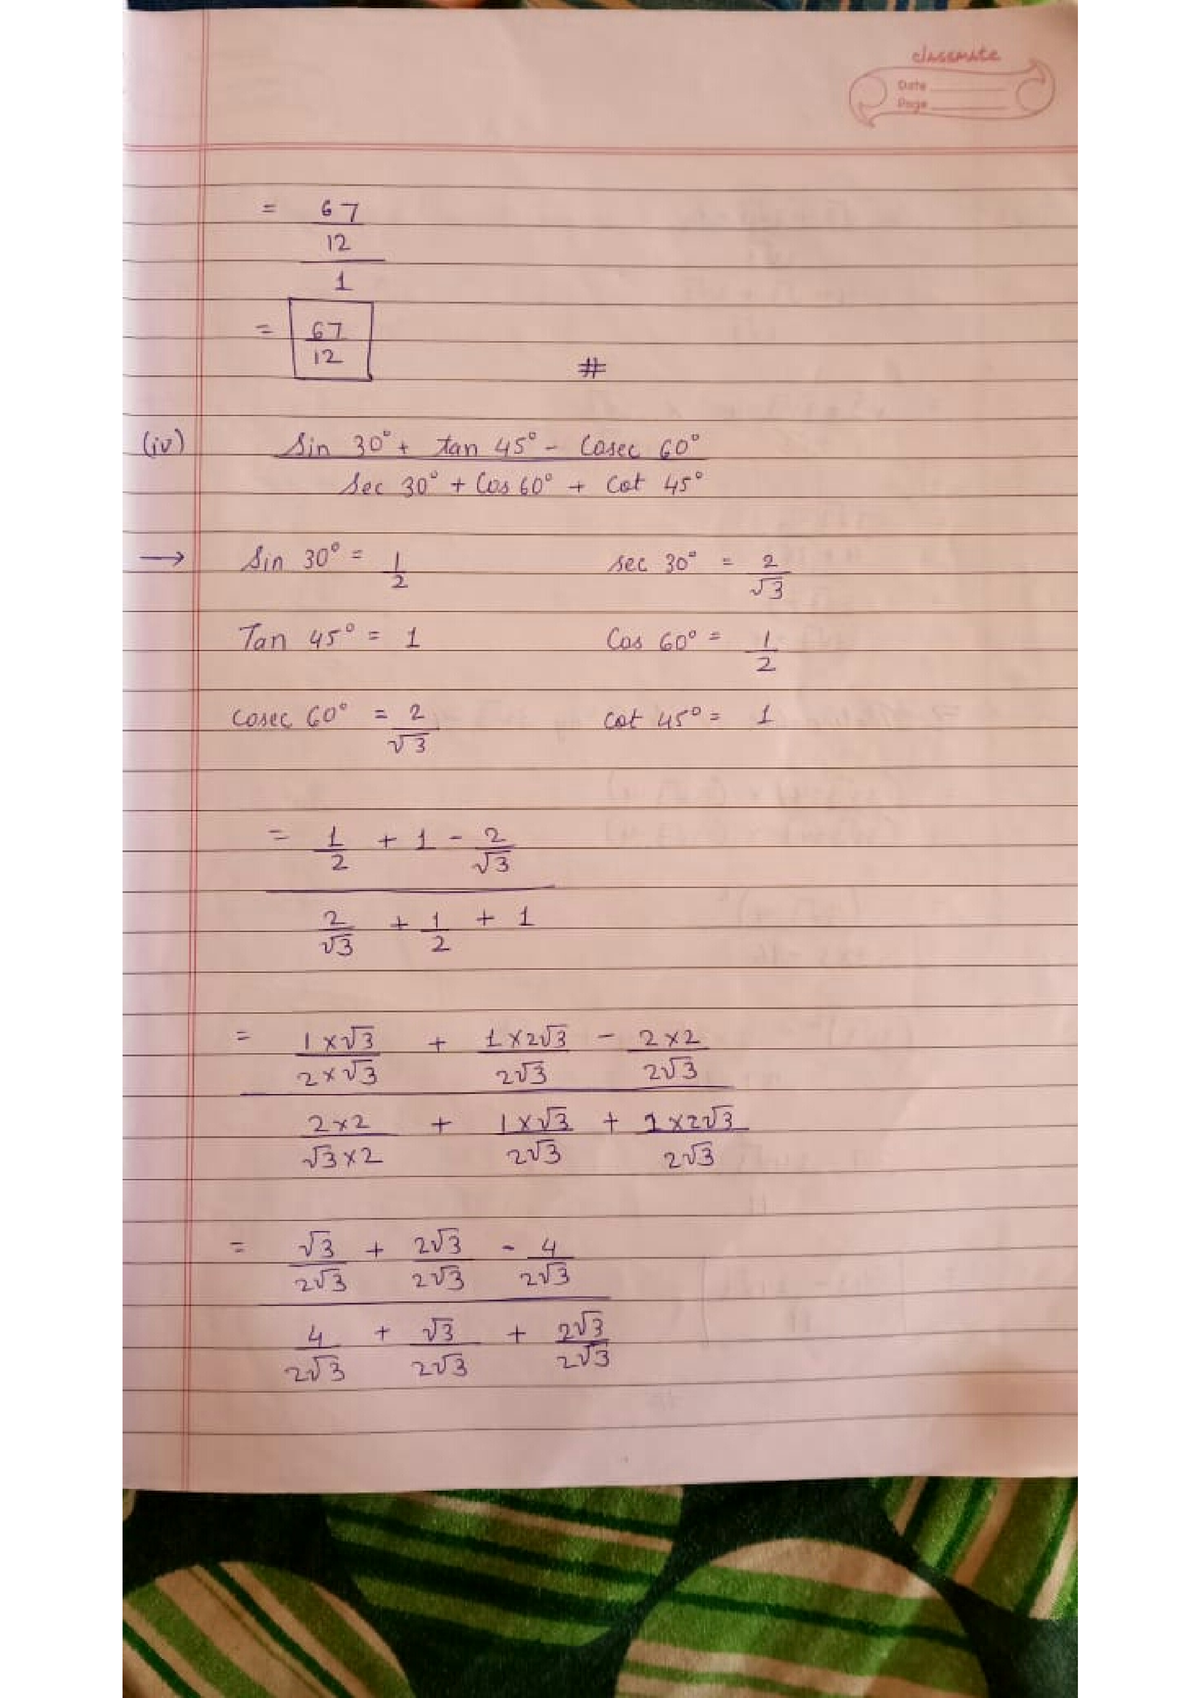 classmate
Date
Page
= 67
12
1
= 67
12
#
(iv) Sin 30° + tan 45° - Cosec 60°
Sec 30° + Cos 60° + Cot 45°
→ Sin 30° = 1/2 sec 30° = 2/√3
Tan 45° = 1 Cos 60° = 1/2
Cosec 60° = 2/√3 Cot 45° = 1
= 1/2 + 1 - 2/√3
2/√3 + 1/2 + 1
= 1×√3/2×√3 + 1×2√3/2√3 - 2×2/2√3
2×2/√3×2 + 1×√3/2√3 + 1×2√3/2√3
= √3/2√3 + 2√3/2√3 - 4/2√3
4/2√3 + √3/2√3 + 2√3/2√3